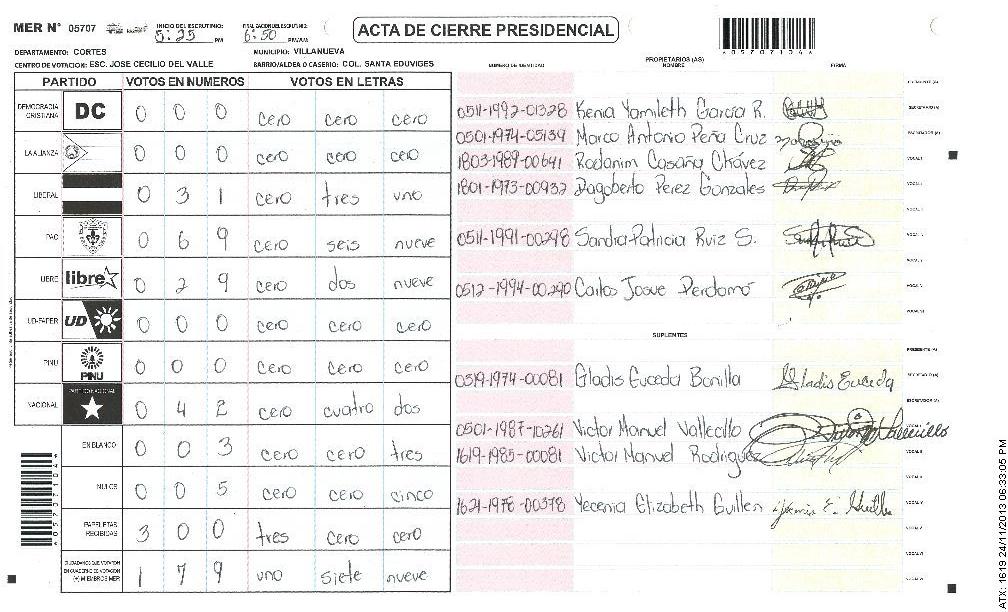 MER Nº 05707
INICIO DEL ESCRUTINIO: 5:25 PM
FINALIZACION DEL ESCRUTINIO: 6:50 PM/AM
ACTA DE CIERRE PRESIDENCIAL
DEPARTAMENTO: CORTES
MUNICIPIO: VILLANUEVA
CENTRO DE VOTACION: ESC. JOSE CECILIO DEL VALLE
BARRIO/ALDEA O CASERIO: COL. SANTA EDUVIGES
PARTIDO VOTOS EN NUMEROS VOTOS EN LETRAS
DEMOCRACIA CRISTIANA DC 0 0 0 cero cero cero
LA ALIANZA 0 0 0 cero cero cero
LIBERAL 0 3 1 cero tres uno
PAC 0 6 9 cero seis nueve
LIBRE libre 0 2 9 cero dos nueve
UD-FAPER UD 0 0 0 cero cero cero
PINU PINU 0 0 0 cero cero cero
NACIONAL PARTIDO NACIONAL 0 4 2 cero cuatro dos
EN BLANCO 0 0 3 cero cero tres
NULOS 0 0 5 cero cero cinco
PAPELETAS RECIBIDAS 3 0 0 tres cero cero
CIUDADANOS QUE VOTARON EN CUADERNO DE VOTACION (+) MIEMBROS MER 1 7 9 uno siete nueve
NUMERO DE IDENTIDAD
PROPIETARIOS (AS)
NOMBRE
FIRMA
0511-1992-01328 Kenia Yamileth García R.
0501-1974-05139 Marco Antonio Peña Cruz
1803-1989-00641 Rodanim Casaña Chávez
1801-1973-00932 Dagoberto Perez Gonzales
0511-1991-00298 Sandra Patricia Ruiz S.
0512-1994-00290 Carlos Josue Perdomo
SUPLENTES
0519-1974-00081 Gladis Euceda Bonilla Gladis Euceda
0501-1987-10261 Victor Manuel Vallecillo
1619-1985-00081 Victor Manuel Rodriguez
1621-1976-00378 Yecenia Elizabeth Guillen
ATX: 1619 24/11/2013 06:33:05 PM